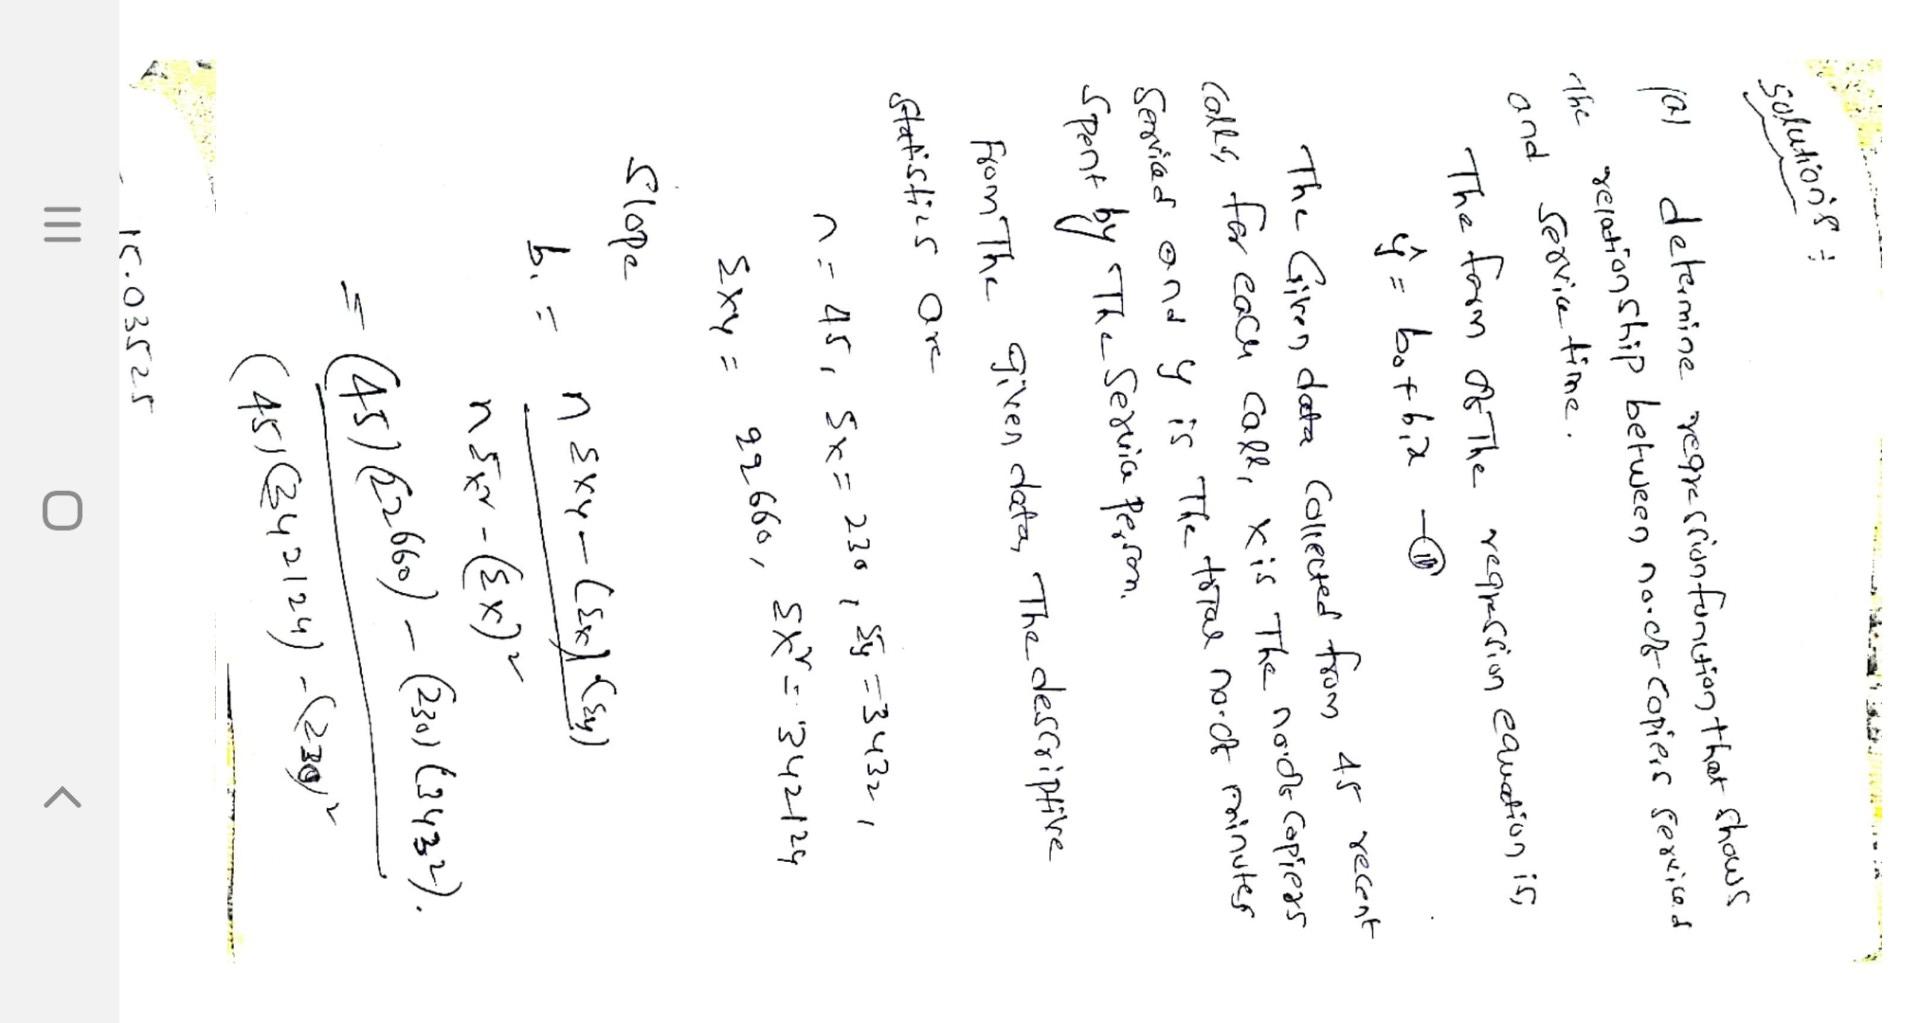 Solution's :
(a) determine regression function that shows
the relationship between no. of copiers serviced
and service time.
The form of The regression equation is,
ŷ = b₀ + b₁x —①
The Given data collected from 45 recent
calls, for each call, x is The no. of copiers
serviced and y is The total no. of minutes
spent by The Service Person.
From The given data, The descriptive
statistics are
n = 45, Σx = 230, Σy = 3432,
Σxy = 22660, Σx² = 342124
Slope
b₁ = n Σxy - (Σx)(Σy)
n Σx² - (Σx)²
= (45)(22660) - (230)(3432).
(45)(342124) - (230)²
15.03525